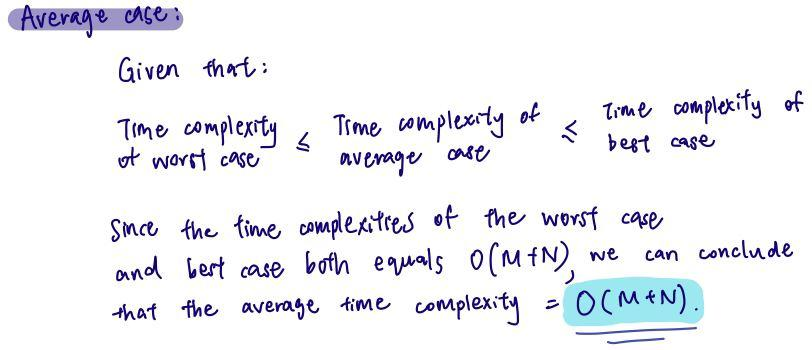 Average case:
Given that:
Time complexity of worst case ≤ Time complexity of average case ≤ Time complexity of best case
Since the time complexities of the worst case
and best case both equals O(M+N), we can conclude
that the average time complexity = O(M+N).